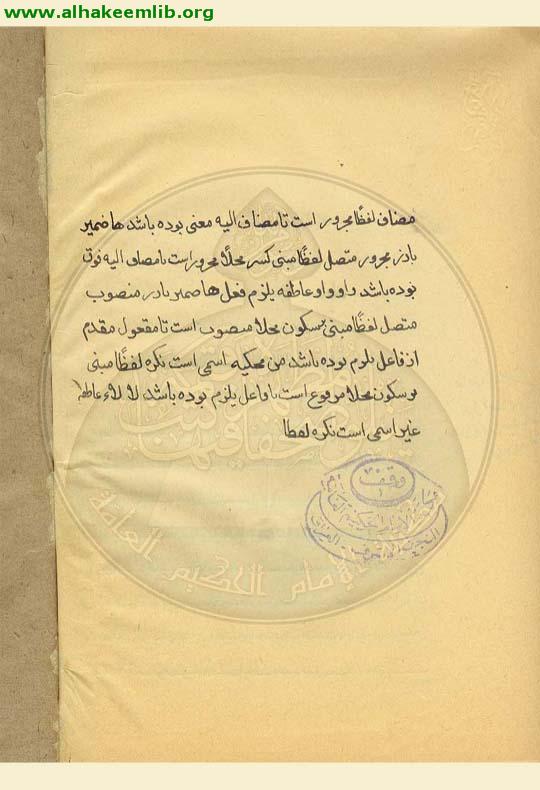 www.alhakeemlib.org
مضاف لفظًا مجرور است تا مضاف الیه معنی بوده باشد ها ضمیر
بارز مجرور متصل لفظًا مبنی کسر محلًا مجرور است تا مضاف الیه فوق
بوده باشد و او و او عاطفه یلزم فعل ها ضمیر بارز منصوب
متصل لفظًا مبنی بر سکون محلا منصوب است تا مفعول مقدم
از فاعل یلزم بوده باشد من محکیه اسمی است نکره لفظًا مبنی
بر سکون محلا مرفوع است تا فاعل یلزم بوده باشد لا لاء عاطفه
غیر اسمی است نکره لفظا
وقف
مكتبة الإمام الحكيم العامة
النجف الأشرف العراق
الإمام الحكيم العامة